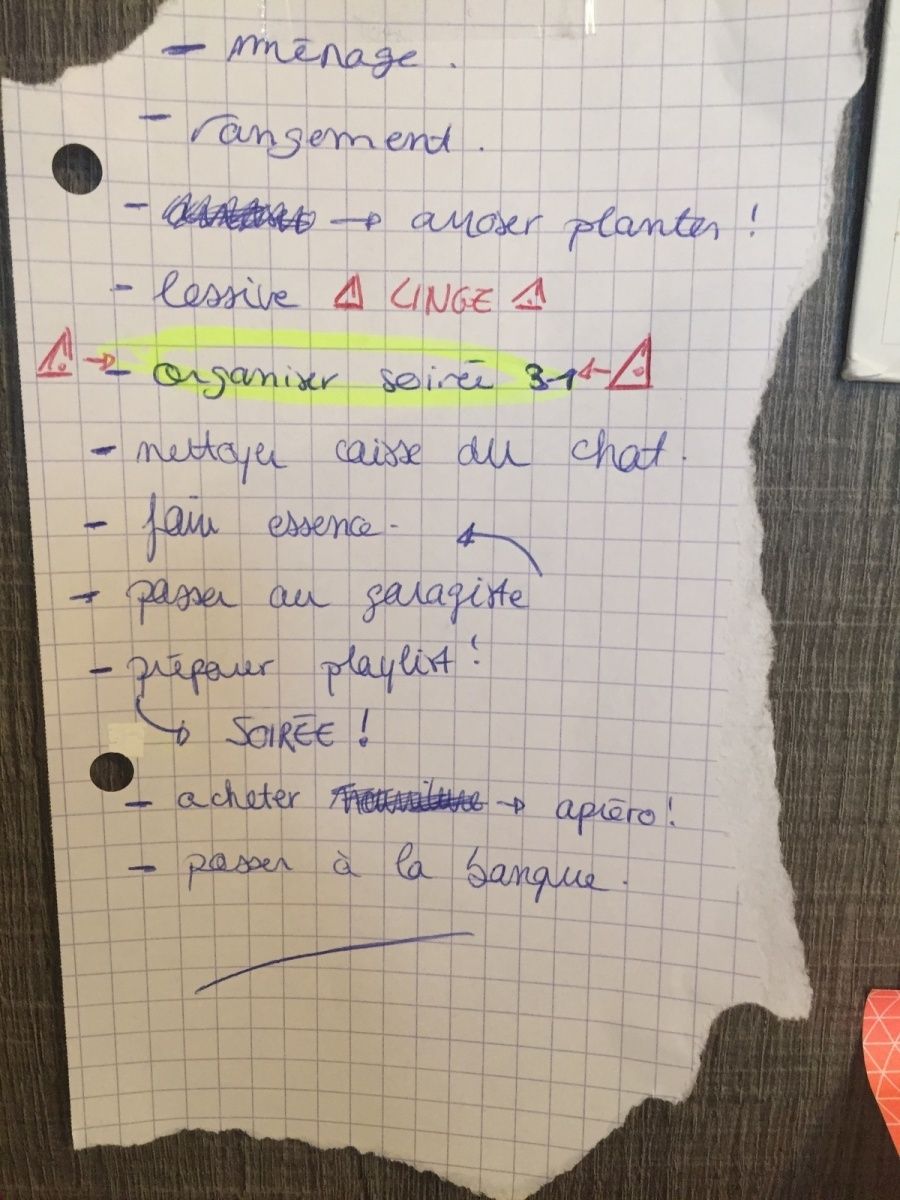 - ménage.
- rangement.
- → arroser plantes !
- lessive ⚠ LINGE ⚠
⚠ → - organiser soirée 31 ← ⚠
- nettoyer caisse du chat.
- faire essence.
- passer au garagiste
- préparer playlist !
→ SOIRÉE !
- acheter → apéro !
- passer à la banque.